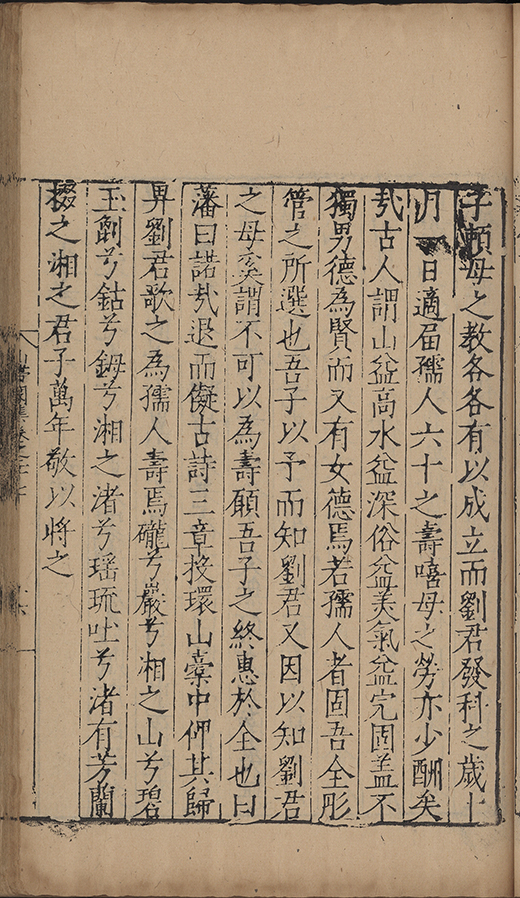 子賴母之教各各有以成立而劉君發科之歲十
月一日適届孺人六十之壽嘻母之勞亦少酬矣
㢤古人謂山益高水益深俗益美氣益完固盖不
獨男德為賢而又有女德焉若孺人者固吾全彤
管之所選也吾子以予而知劉君又因以知劉君
之母奚謂不可以為壽願吾子之終惠於全也曰
藩曰諾㢤退而儗古詩三章投環山橐中俾其歸
畀劉君歌之為孺人壽焉礲兮巖兮湘之山兮碧
玉劊兮鈷兮鉧兮湘之渚兮瑶琉吐兮渚有芳蘭
掇之湘之君子萬年敬以將之